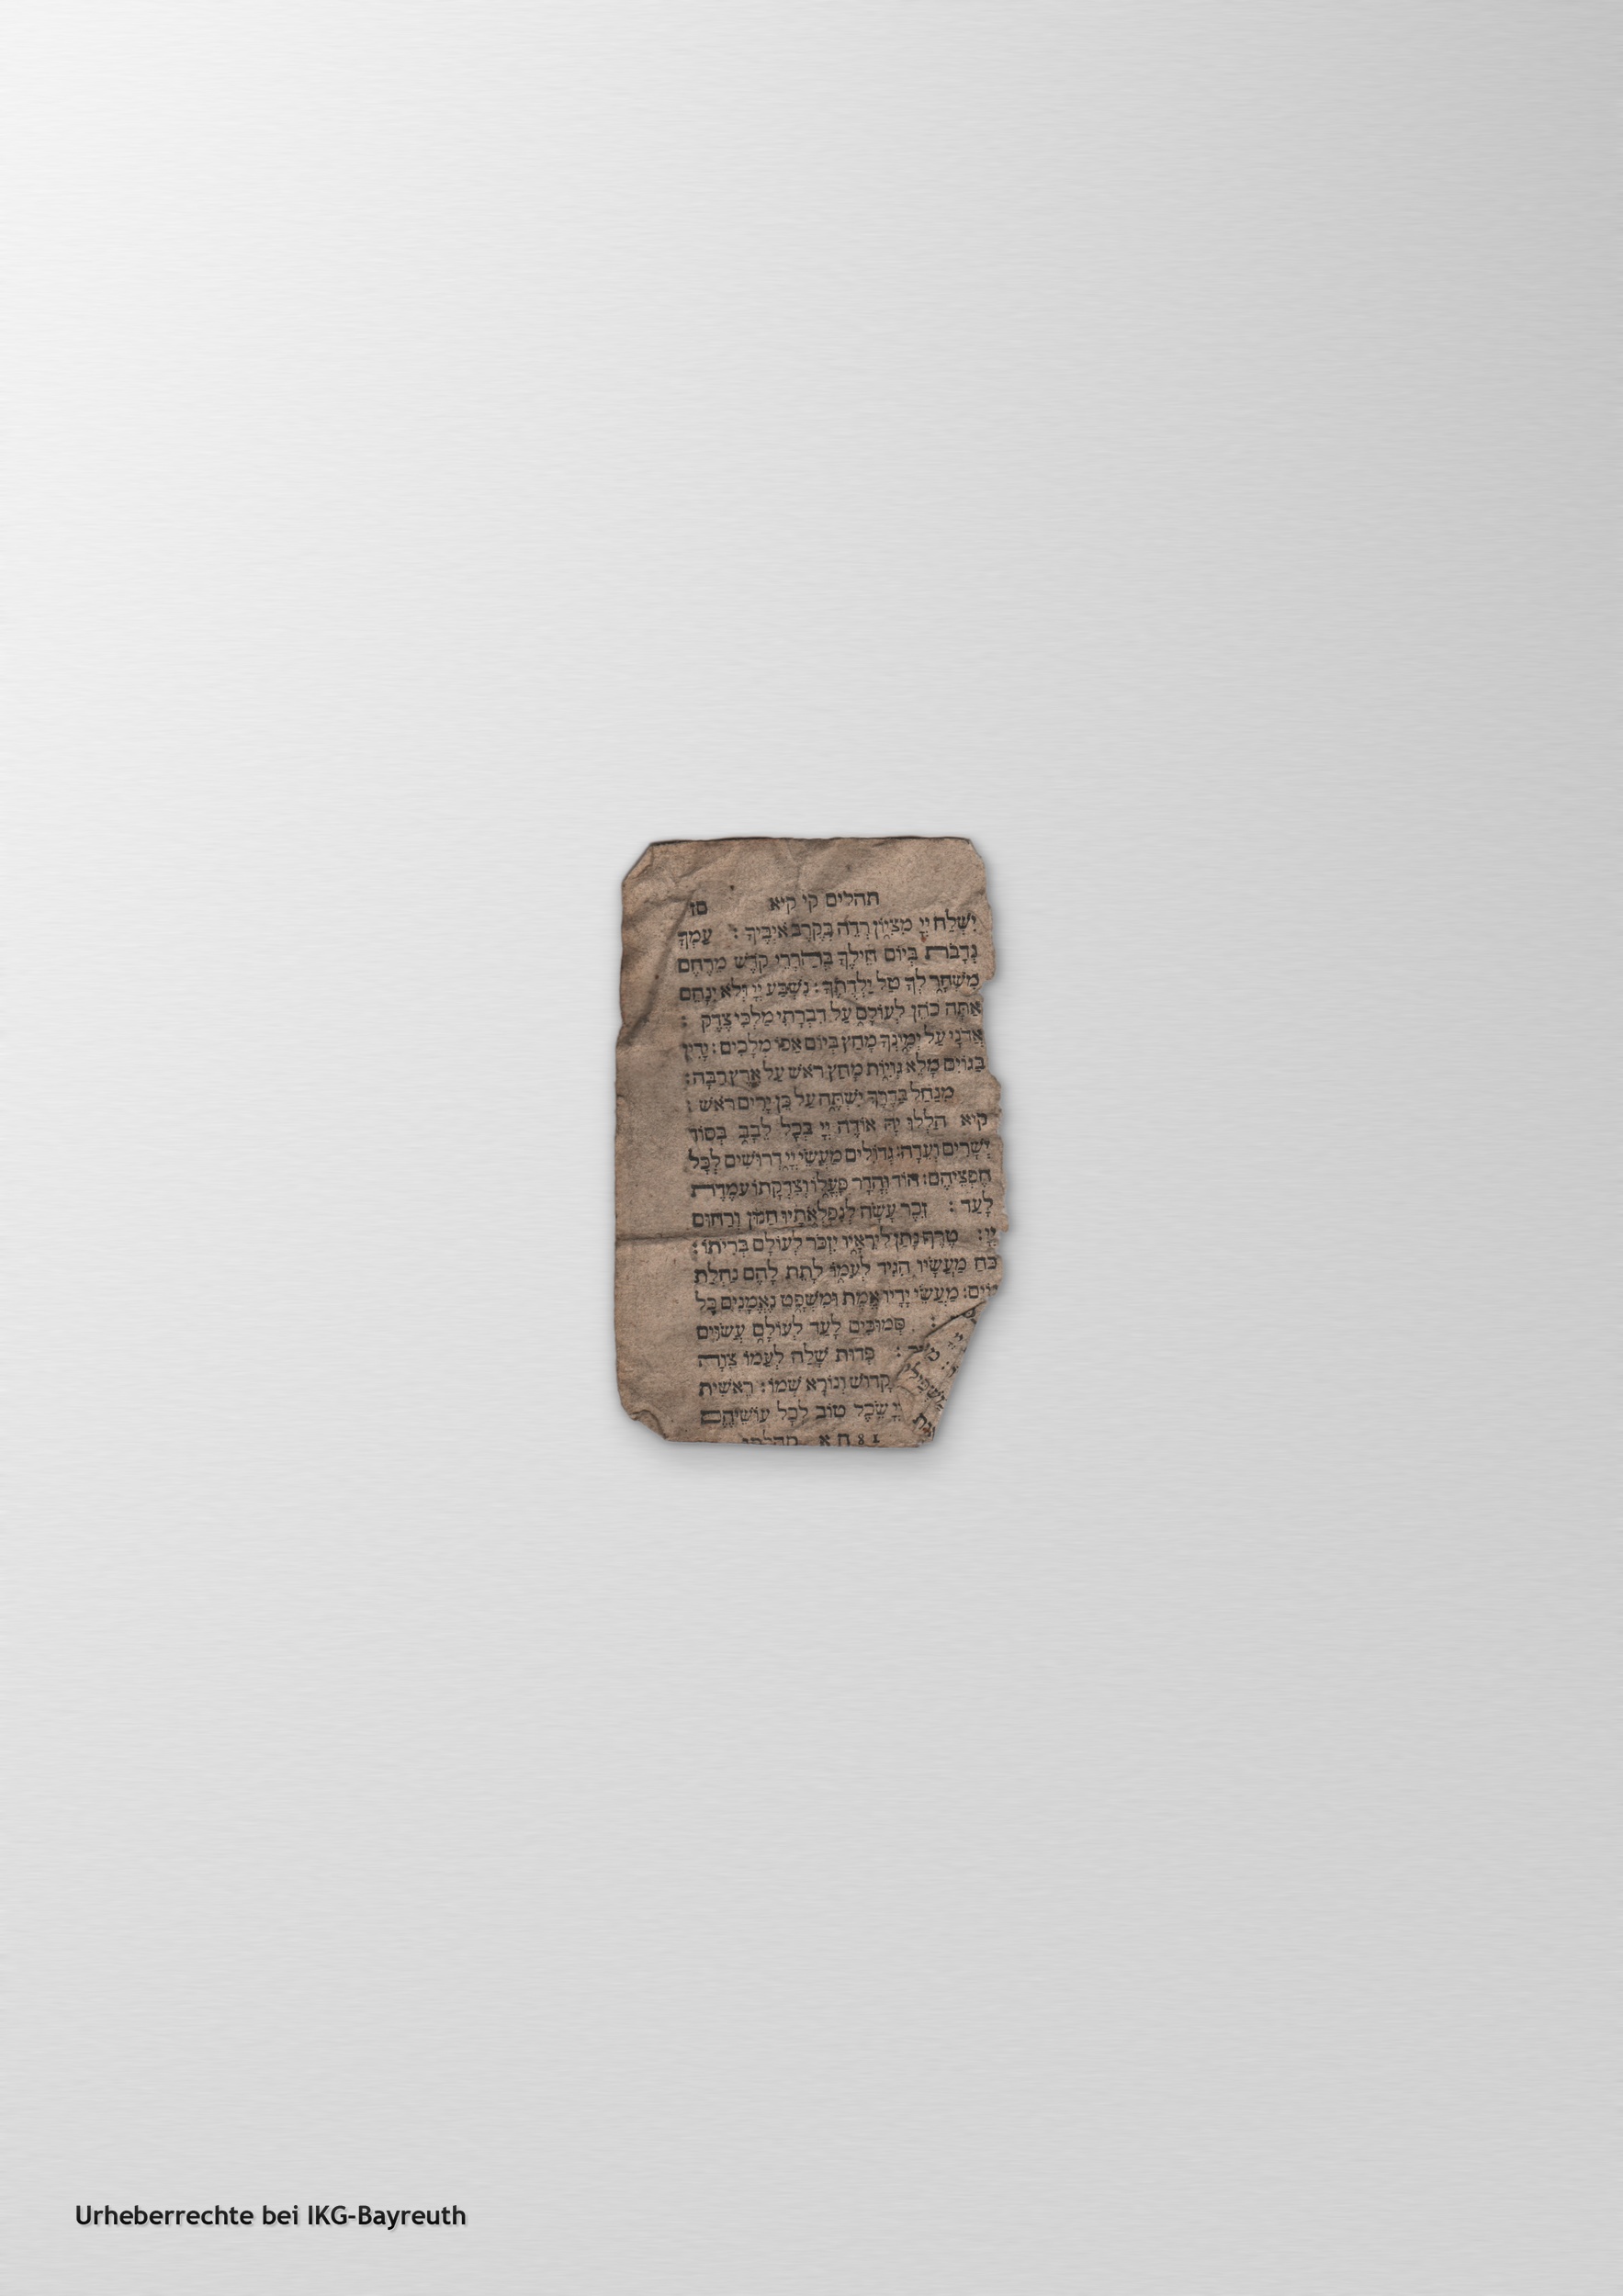 תהלים קי קיא סז
יִשְׁלַח יְיָ מִצִּיּוֹן רְדֵה בְּקֶרֶב אֹיְבֶיךָ : עַמְּךָ
נְדָבֹת בְּיוֹם חֵילֶךָ בְּהַדְרֵי קֹדֶשׁ מֵרֶחֶם
מִשְׁחָר לְךָ טַל יַלְדֻתֶךָ : נִשְׁבַּע יְיָ וְלֹא יִנָּחֵם
אַתָּה כֹהֵן לְעוֹלָם עַל דִּבְרָתִי מַלְכִּי צֶדֶק :
אֲדֹנָי עַל יְמִינְךָ מָחַץ בְּיוֹם אַפּוֹ מְלָכִים : יָדִין
בַּגּוֹיִם מָלֵא גְוִיּוֹת מָחַץ רֹאשׁ עַל אֶרֶץ רַבָּה :
מִנַּחַל בַּדֶּרֶךְ יִשְׁתֶּה עַל כֵּן יָרִים רֹאשׁ :
קיא הַלְלוּ יָהּ אוֹדֶה יְיָ בְּכָל לֵבָב בְּסוֹד
יְשָׁרִים וְעֵדָה : גְּדוֹלִים מַעֲשֵׂי יְיָ דְּרוּשִׁים לְכָל
חֶפְצֵיהֶם : הוֹד וְהָדָר פָּעֳלוֹ וְצִדְקָתוֹ עֹמֶדֶת
לָעַד : זֵכֶר עָשָׂה לְנִפְלְאֹתָיו חַנּוּן וְרַחוּם
יְיָ : טֶרֶף נָתַן לִירֵאָיו יִזְכֹּר לְעוֹלָם בְּרִיתוֹ :
כֹּחַ מַעֲשָׂיו הִגִּיד לְעַמּוֹ לָתֵת לָהֶם נַחֲלַת
גּוֹיִם : מַעֲשֵׂי יָדָיו אֱמֶת וּמִשְׁפָּט נֶאֱמָנִים כָּל
: סְמוּכִים לָעַד לְעוֹלָם עֲשׂוּיִם
: פְּדוּת שָׁלַח לְעַמּוֹ צִוָּה
קָדוֹשׁ וְנוֹרָא שְׁמוֹ : רֵאשִׁית
יְיָ שֵׂכֶל טוֹב לְכָל עוֹשֵׂיהֶם
Urheberrechte bei IKG-Bayreuth